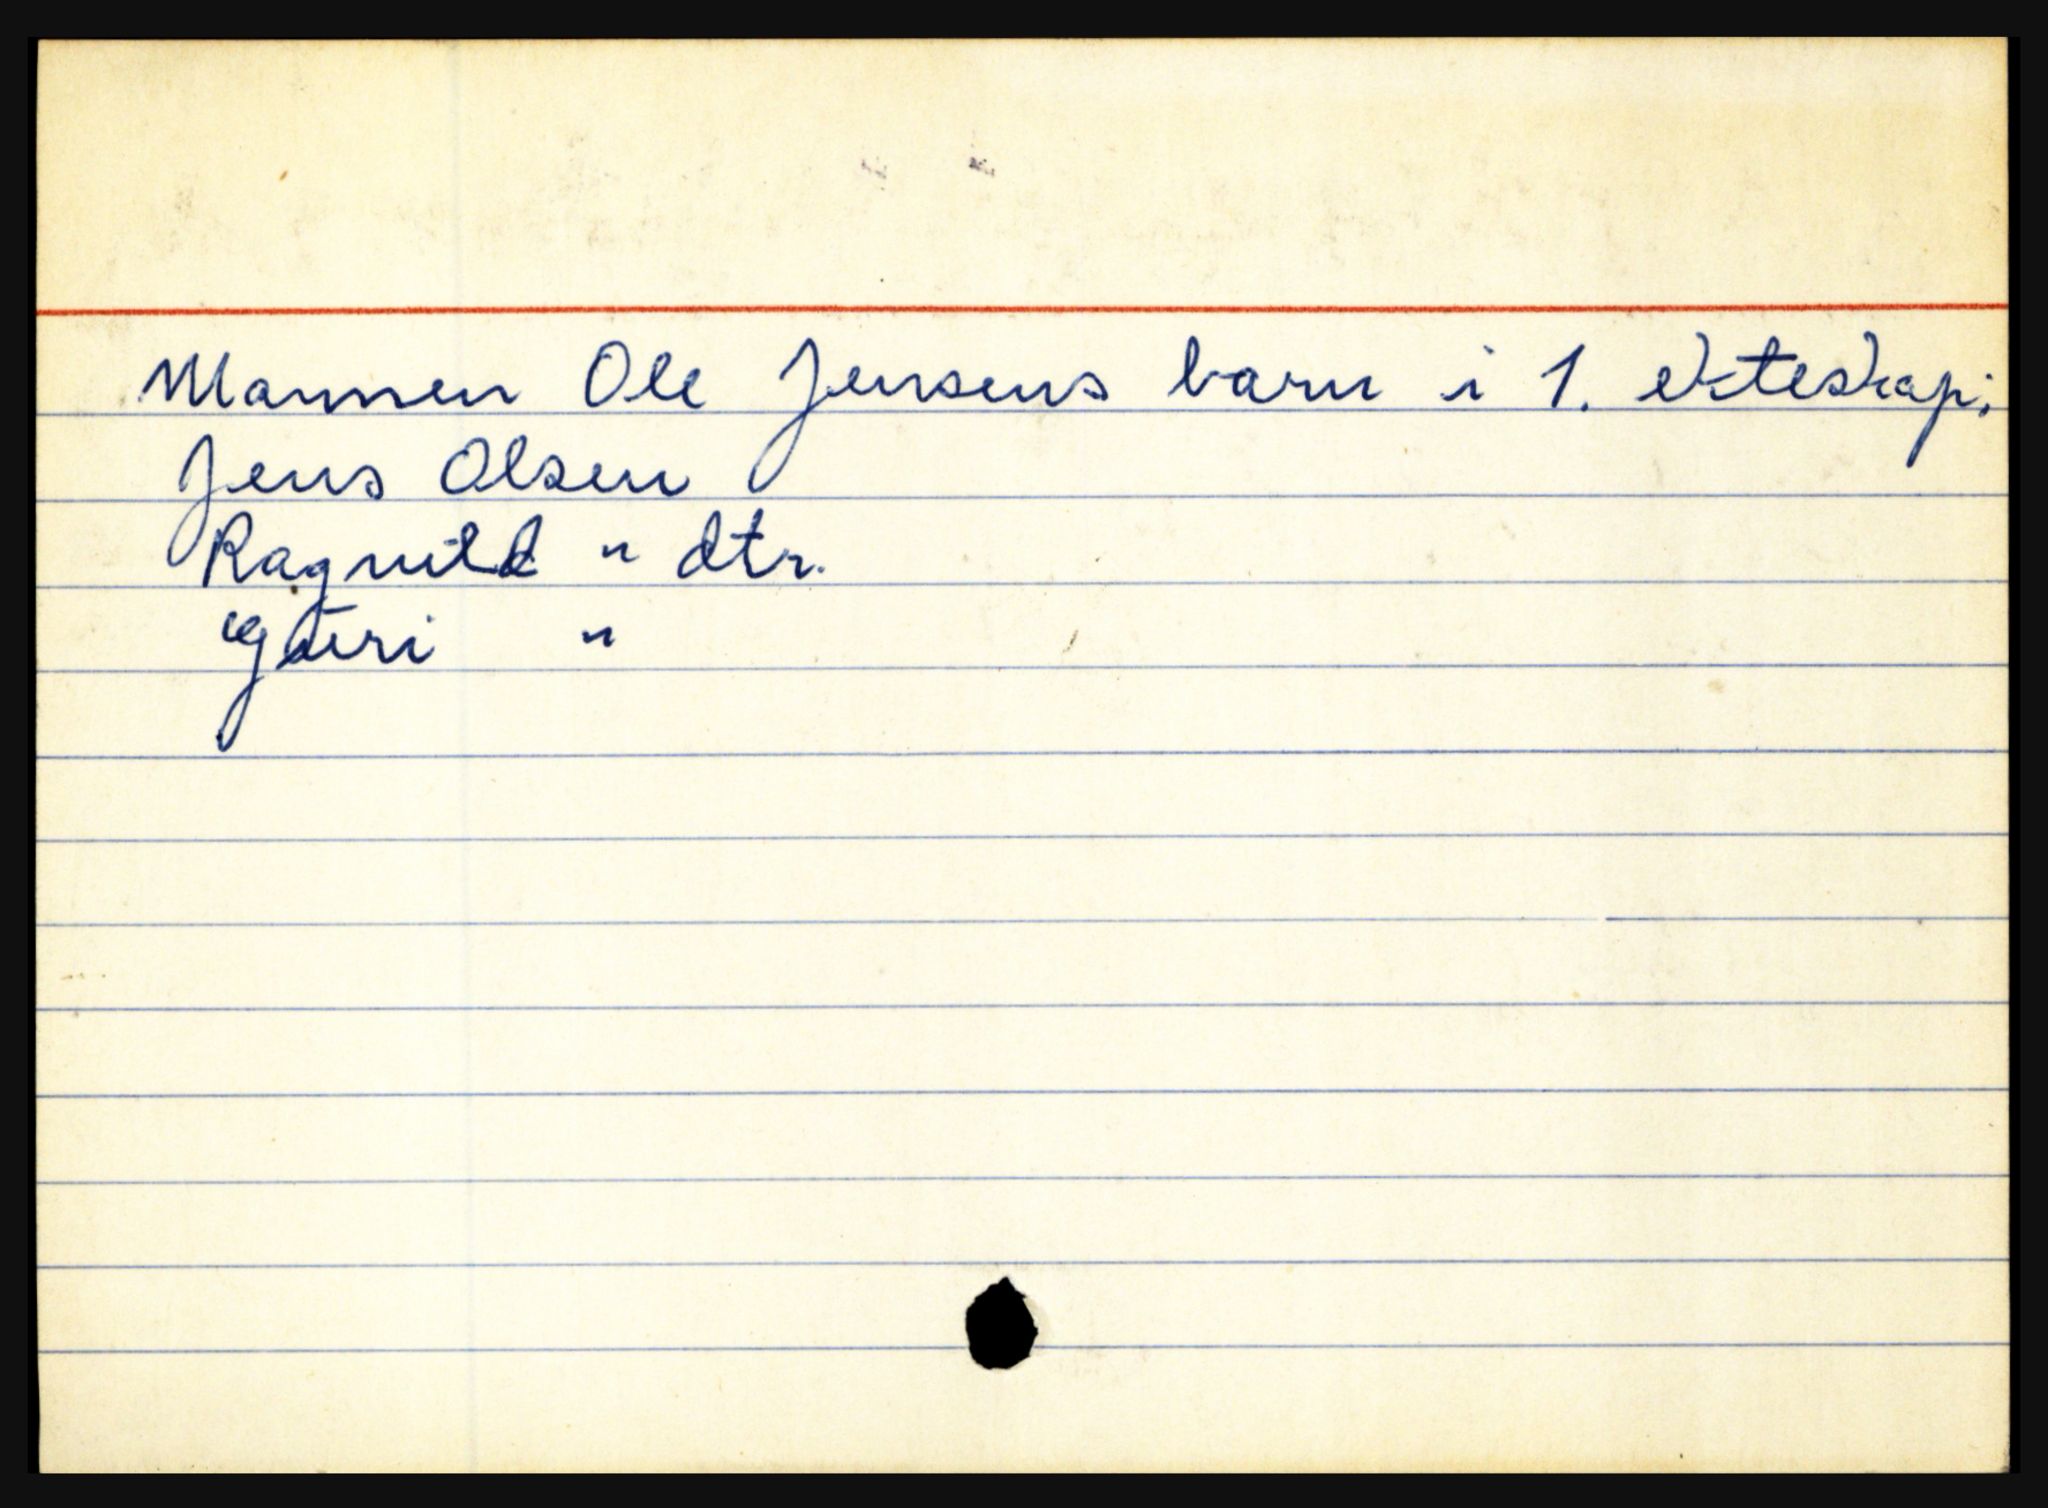 Mannen Ole Jensens barn i 1. ekteskap:
Jens Olsen
Ragnild " dtr.
Guri "